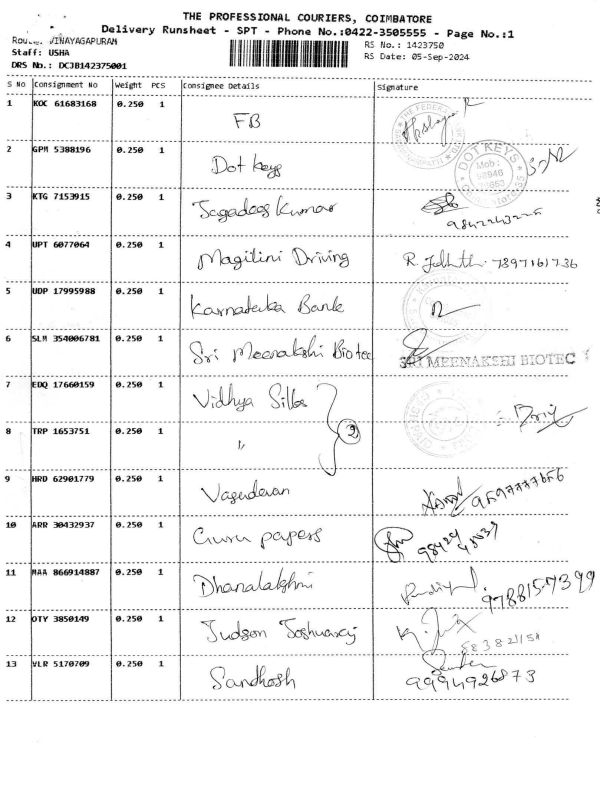 THE PROFESSIONAL COURIERS, COIMBATORE
Delivery Runsheet - SPT - Phone No.:0422-3505555 - Page No.:1
Route: VINAYAGAPURAM
Staff: USHA
DRS No.: DCJB142375001
RS No.: 1423750
RS Date: 05-Sep-2024
S NO Consignment No Weight PCS Consignee Details Signature
1 KOC 61683168 0.250 1 FB
2 GPM 5388196 0.250 1 Dot keys DOT KEYS Mob:
3 KTG 7153915 0.250 1 Jagadees Kumar
4 UPT 6077064 0.250 1 Magilini Driving 7397161736
5 UDP 17995988 0.250 1 Karnataka Bank
6 SLM 354006781 0.250 1 Sri Meenakshi Biotec SRI MEENAKSHI BIOTEC
7 EDQ 17660159 0.250 1 Vidhya Silks
8 TRP 1653751 0.250 1 〃 2
9 HRD 62901779 0.250 1 Vasudevan
10 ARR 30432937 0.250 1 Guru papers
11 MAA 866914887 0.250 1 Dhanalakshmi 9788157399
12 OTY 3850149 0.250 1 Judson
13 VLR 5170709 0.250 1 Sandhosh 9994926873